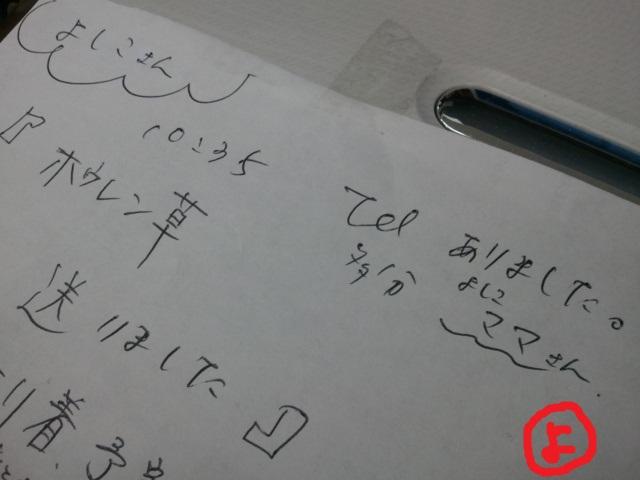 よしこさん
10:35
ホウレン草
送りました
Tel ありました。
多分 よしこ
ママさん.
り着.
よ